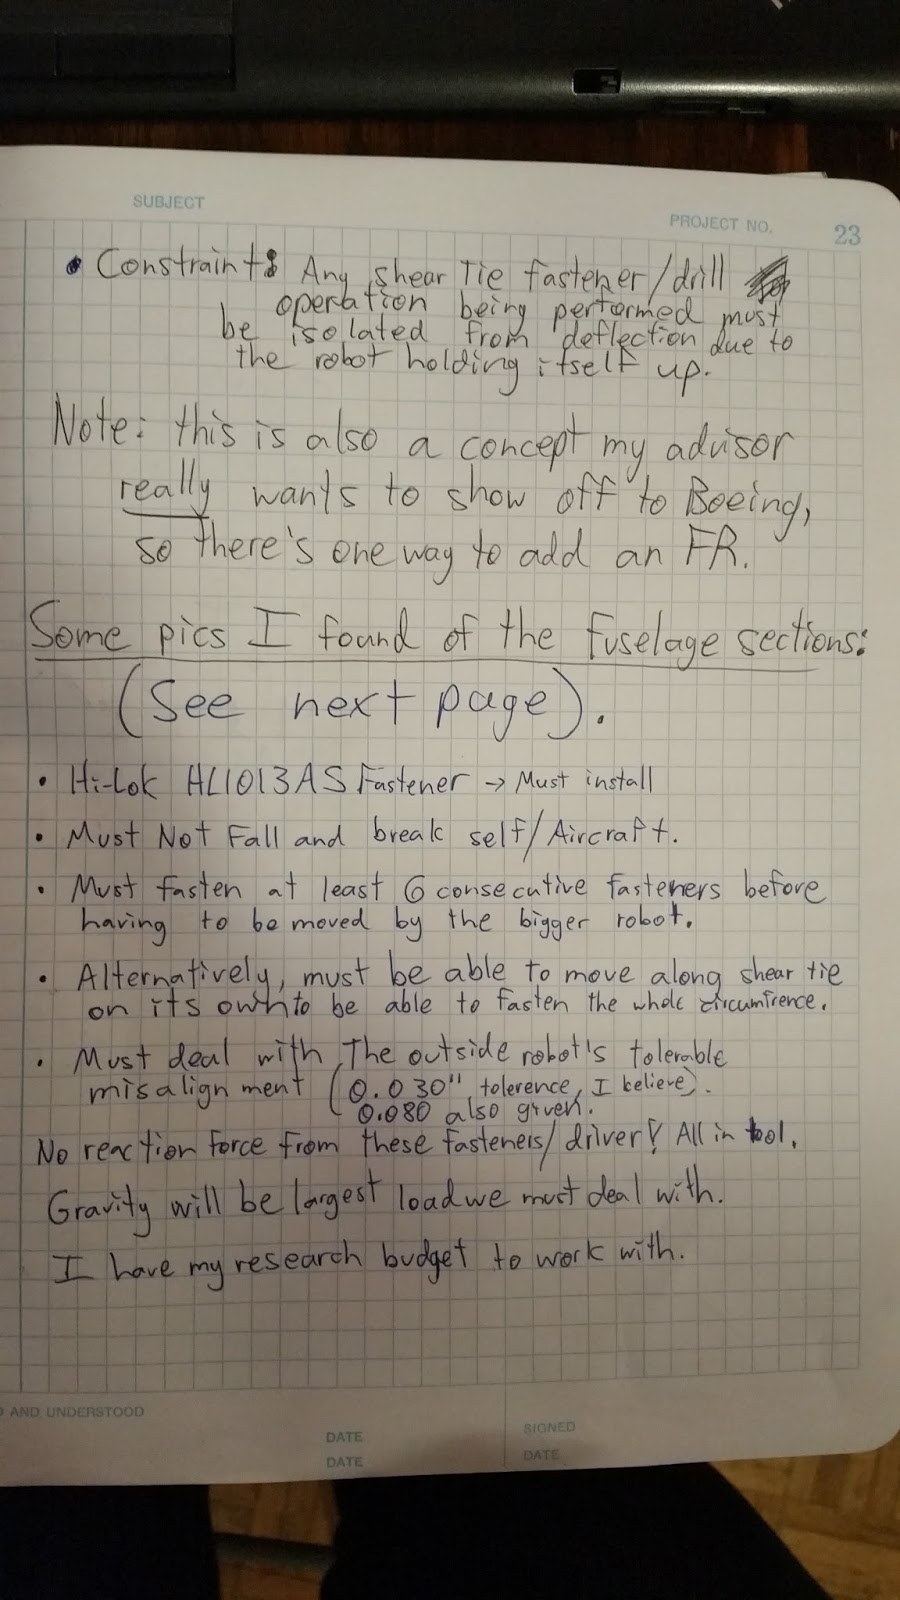 SUBJECT
PROJECT NO.
23
• Constraint: Any shear Tie fastener/drill
operation being performed must
be isolated from deflection due to
the robot holding itself up.
Note: this is also a concept my advisor
really wants to show off to Boeing,
so there's one way to add an FR.
Some pics I found of the fuselage sections:
(See next page).
• Hi-Lok HL1013AS Fastener → Must install
• Must Not Fall and break self/Aircraft.
• Must fasten at least 6 consecutive fasteners before
having to be moved by the bigger robot.
• Alternatively, must be able to move along shear tie
on its own to be able to fasten the whole circumfrence.
• Must deal with The outside robot's tolerable
misalignment (0.030" tolerence, I believe).
0.080 also given.
No reaction force from these fasteners/driver! All in tool.
Gravity will be largest load we must deal with.
I have my research budget to work with.
AND UNDERSTOOD
DATE
DATE
SIGNED
DATE